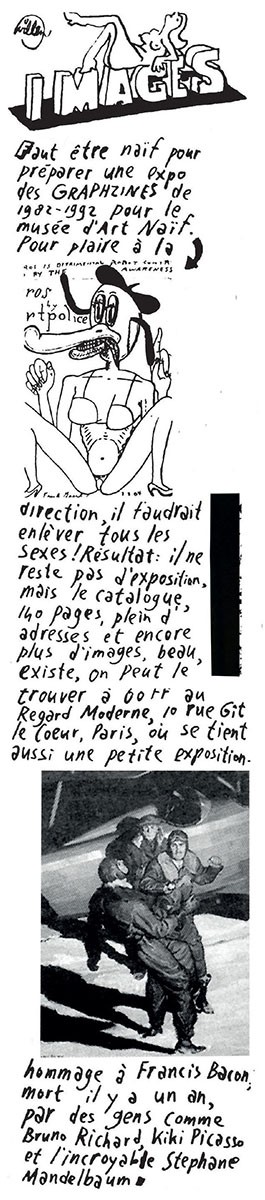 Willem
IMAGES
Faut être naïf pour
préparer une expo
des GRAPHZINES de
1982-1992 pour le
musée d'Art Naïf.
Pour plaire à la
ROS IS DETRIMENTAL ROBOT CONTR
BY THE AWARENESS
ros
ty
rtpolice
direction, il faudrait
enlèver tous les
sexes! Résultat: il ne
reste pas d'exposition,
mais le catalogue,
140 pages, plein d'
adresses et encore
plus d'images, beau,
existe, on peut le
trouver à 60 FF au
Regard Moderne, 10 rue Gît
le Coeur, Paris, où se tient
aussi une petite exposition.
hommage à Francis Bacon,
mort il y a un an,
par des gens comme
Bruno Richard, Kiki Picasso
et l'incroyable Stephane
Mandelbaum.